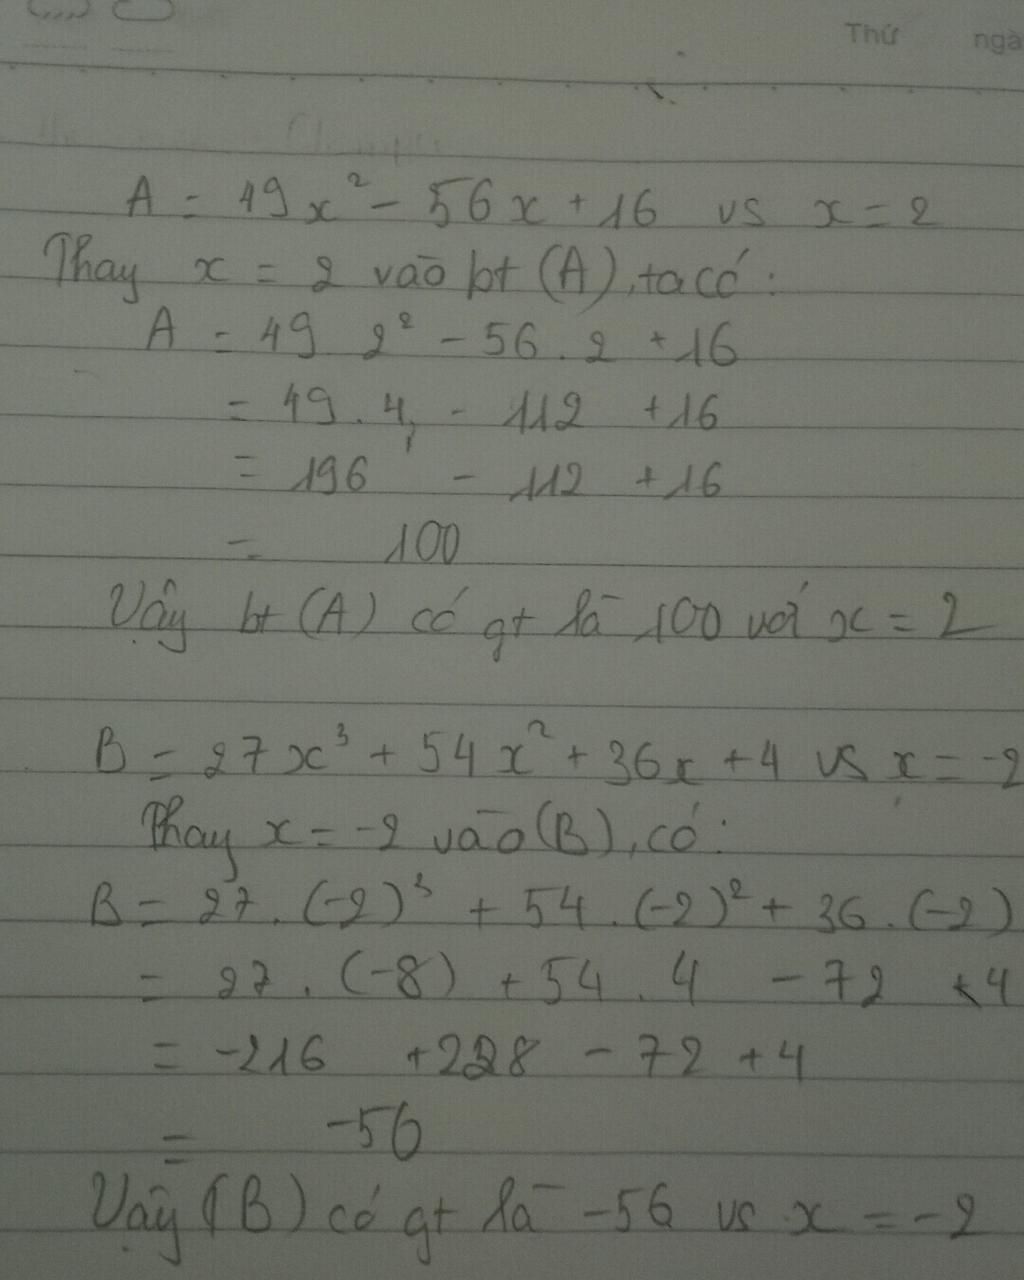 Thứ ngà
A = 49x² - 56x + 16 vs x = 2
Thay x = 2 vào bt (A), ta có:
A = 49 2² - 56 . 2 + 16
= 49 . 4, - 112 + 16
= 196 - 112 + 16
= 100
Vậy bt (A) có gt là 100 với x = 2
B = 27x³ + 54x² + 36x + 4 vs x = -2
Thay x = -2 vào (B), có:
B = 27 . (-2)³ + 54 . (-2)² + 36 . (-2)
= 27 . (-8) + 54 . 4 - 72 + 4
= -216 + 228 - 72 + 4
= -56
Vậy (B) có gt là -56 vs x = -2